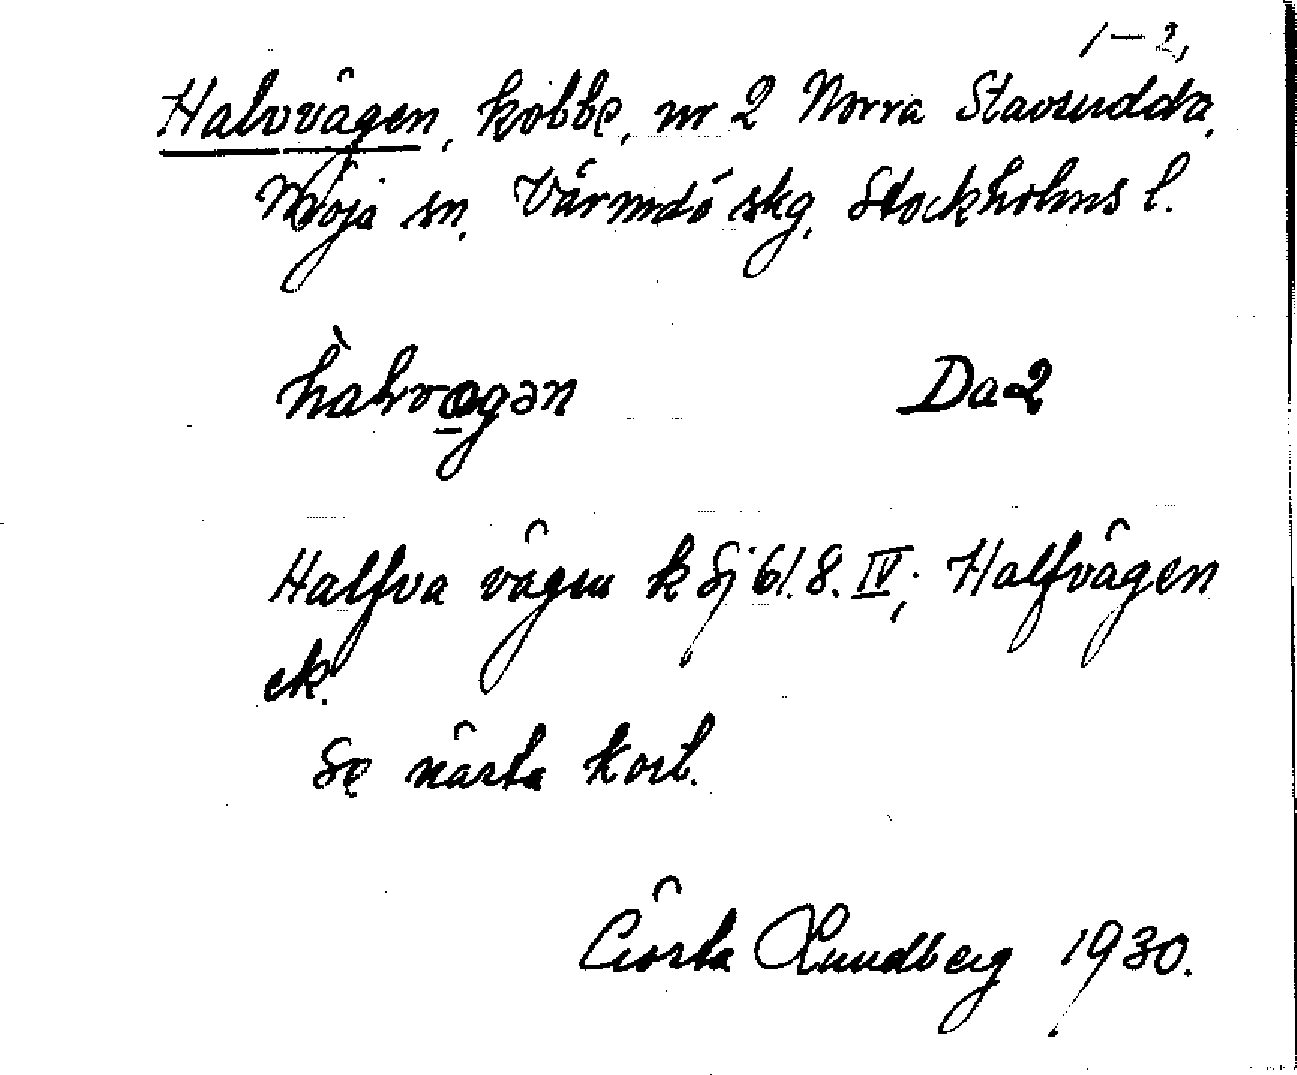 1–2,
Halvvägen, kobbe, nr 2 Norra Stavsudda,
Möja sn, Värmdö skg, Stockholms l.
hàlvo̲gən Da2
Halfva vägen k Sj 61.8.IV; Halfvägen
ek.
Se nästa kort.
Gösta Lundberg 1930.